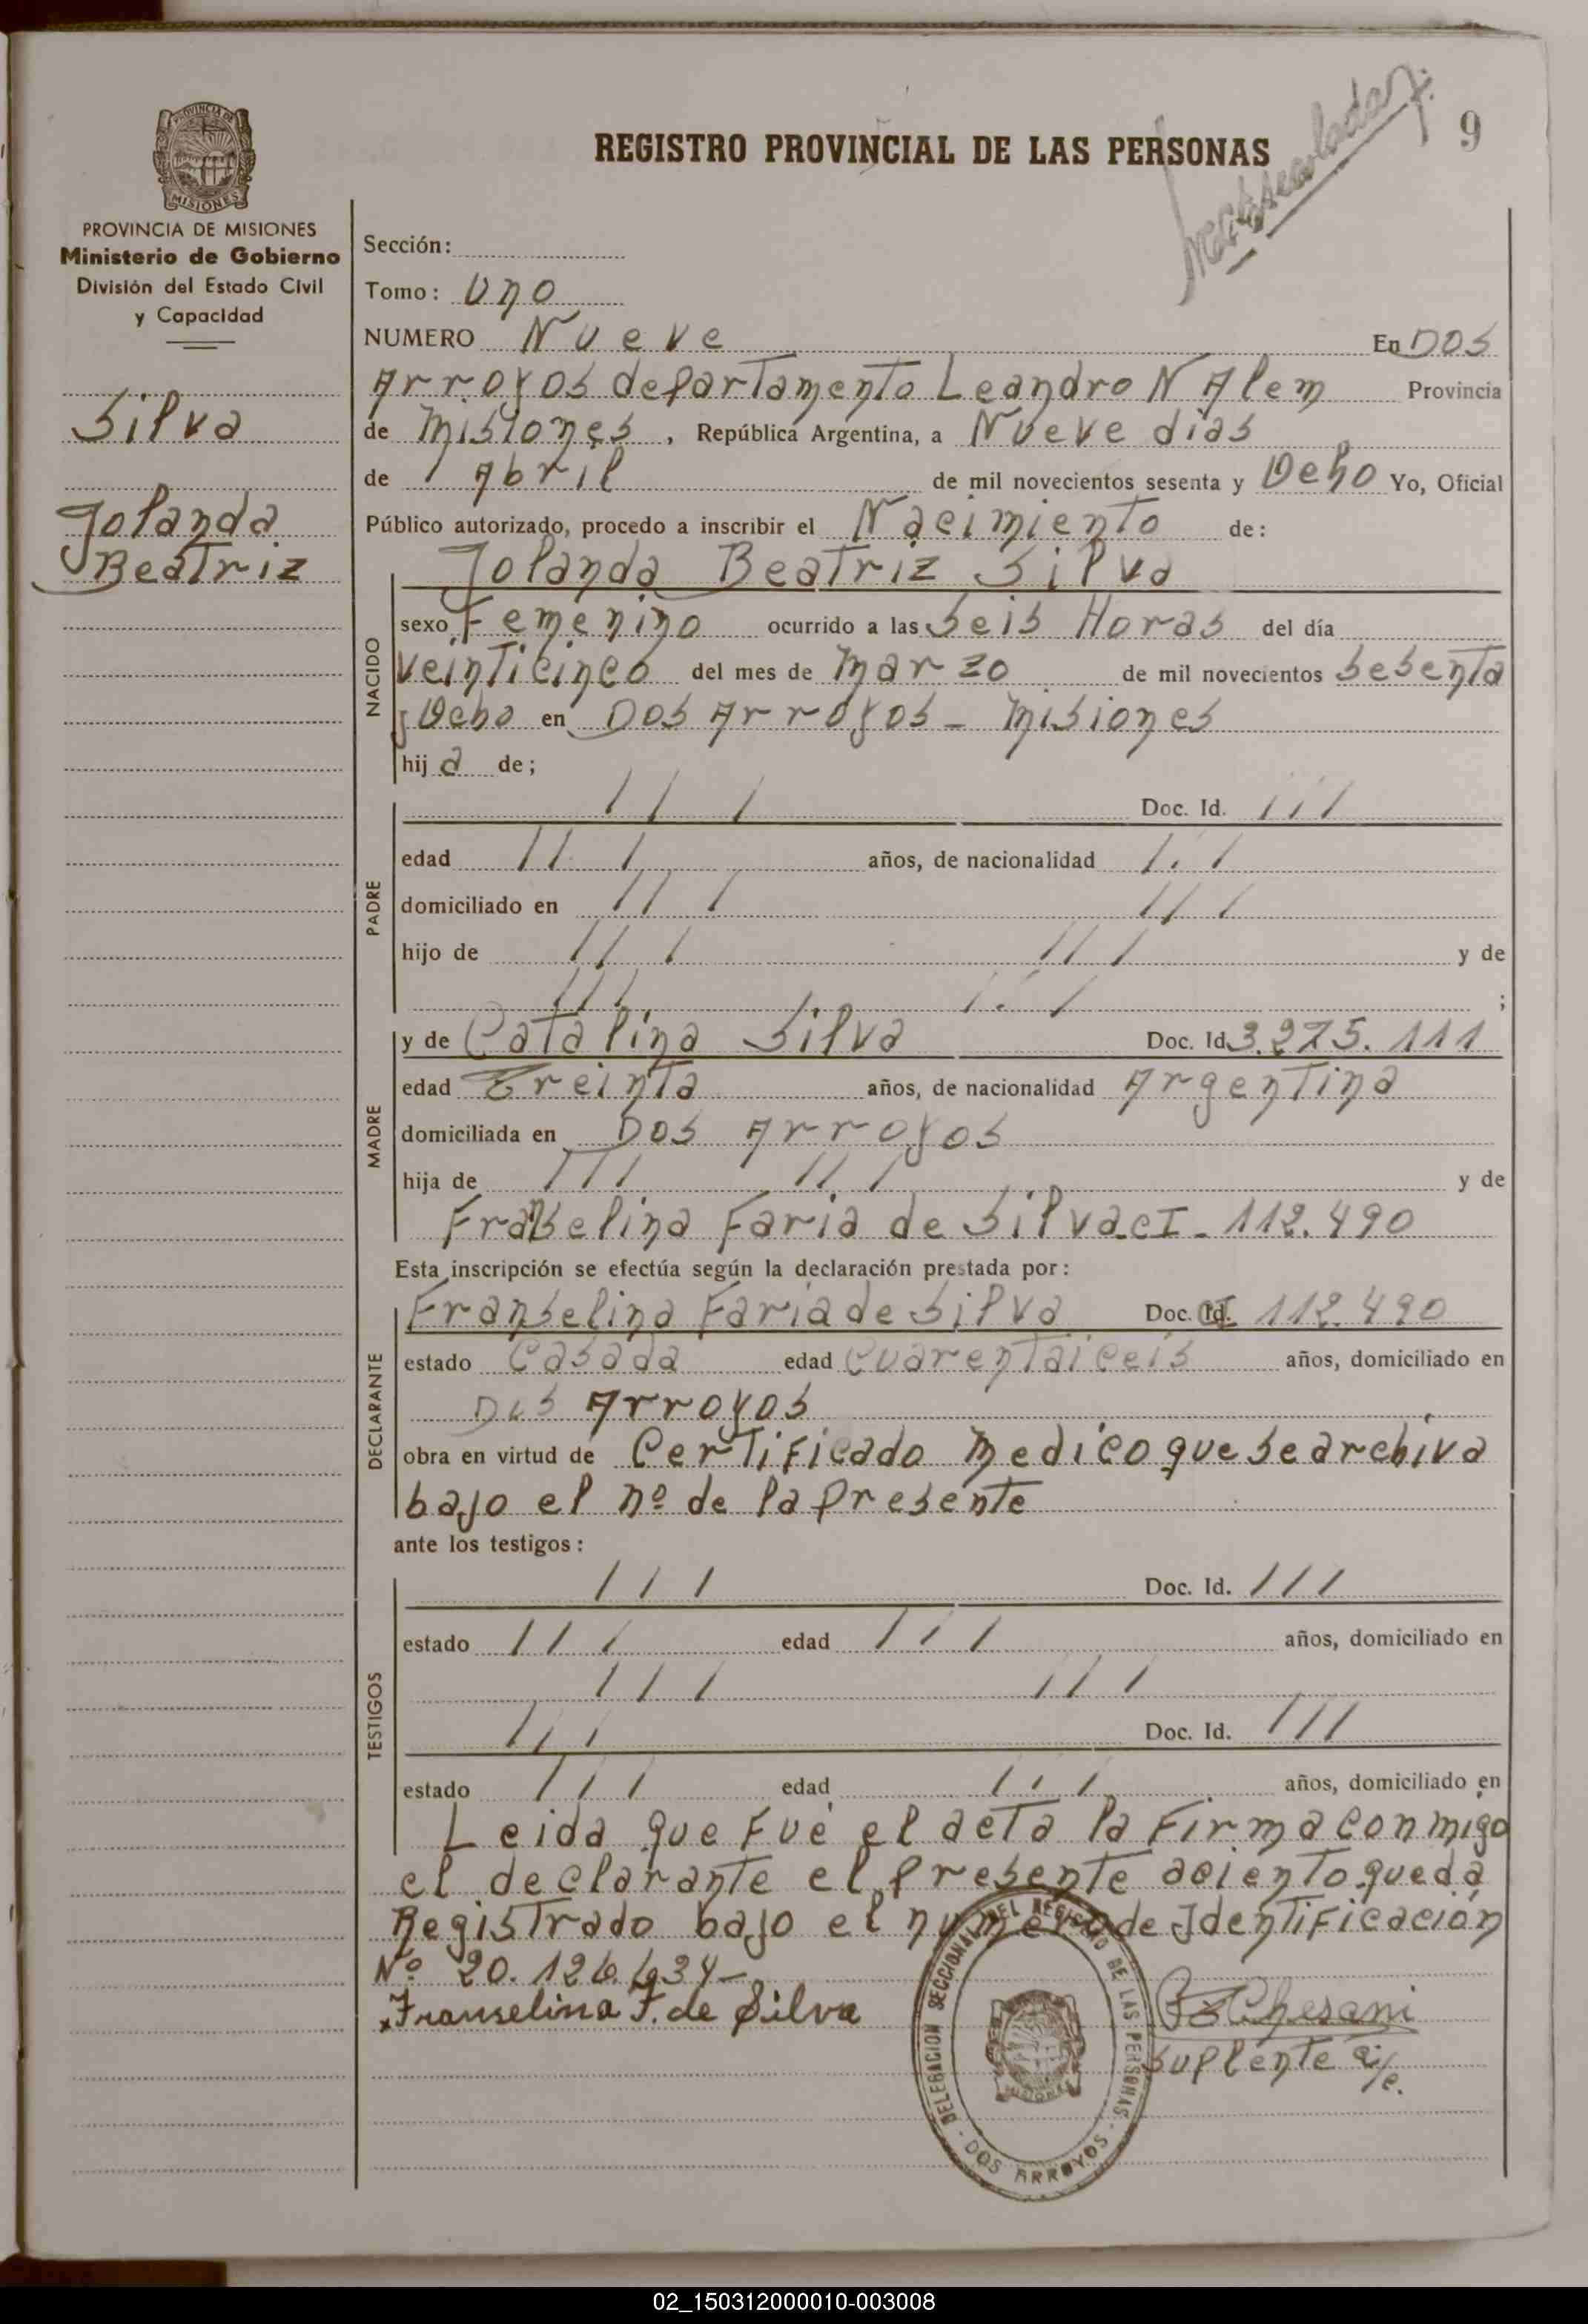 REGISTRO PROVINCIAL DE LAS PERSONAS
9
PROVINCIA DE MISIONES
PROVINCIA DE MISIONES
Ministerio de Gobierno
División del Estado Civil
y Capacidad
Silva
Jolanda
Beatriz
Sección:
Tomo: Uno
NUMERO Nueve En Dos
Arroyos departamento Leandro N Alem Provincia
de Misiones, República Argentina, a Nueve dias
de Abril de mil novecientos sesenta y Ocho Yo, Oficial
Público autorizado, procedo a inscribir el Nacimiento de:
Jolanda Beatriz Silva
NACIDO
sexo Femenino ocurrido a las Seis Horas del día
veinticinco del mes de Marzo de mil novecientos sesenta
y Ocho en Dos Arroyos - Misiones
hija de;
PADRE
/ / / Doc. Id. / / /
edad / / / años, de nacionalidad / . /
domiciliado en / / / / / /
hijo de / / / / / / y de
/ / / / . / ;
MADRE
y de Catalina Silva Doc. Id. 3.275.111
edad Treinta años, de nacionalidad Argentina
domiciliada en Dos Arroyos
hija de / / / / / / y de
Franselina Faria de Silva CI - 112.490
Esta inscripción se efectúa según la declaración prestada por:
DECLARANTE
Franselina Faria de Silva Doc. CI 112.490
estado Casada edad Cuarentaiceis años, domiciliado en
Dos Arroyos
obra en virtud de Certificado Medico que se archiva
bajo el nº de la presente
ante los testigos:
TESTIGOS
/ / / Doc. Id. / / /
estado / / / edad / / / años, domiciliado en
/ / / / / /
/ / / Doc. Id. / / /
estado / / / edad / / / años, domiciliado en
Leida que fué el acta la firma conmigo
el declarante el presente aciento queda
Registrado bajo el numero de Identificación
Nº 20.126.634-
Franselina F. de Silva
Chesani
Suplente a/c.
DELEGACION SECCIONAL DEL REGISTRO DE LAS PERSONAS - DOS ARROYOS -
02_150312000010-003008